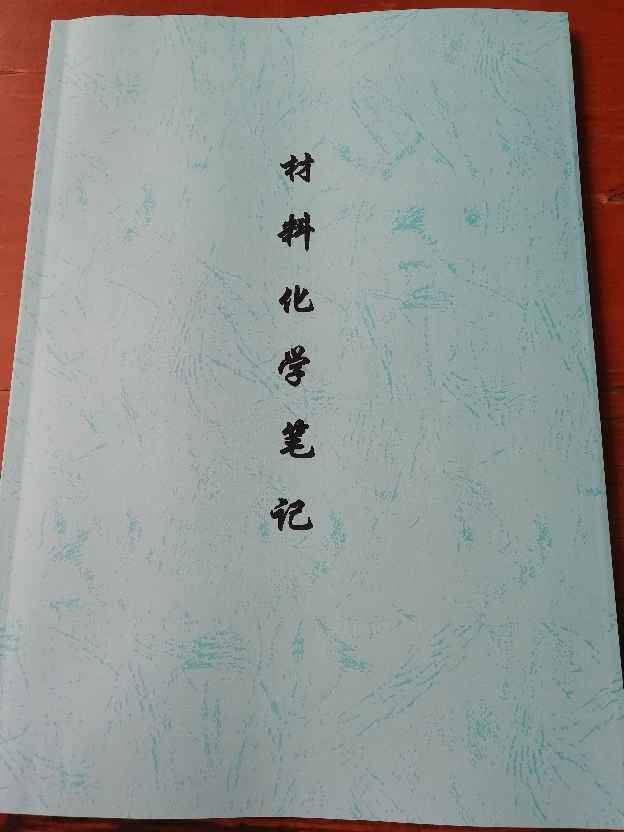 材料化学笔记